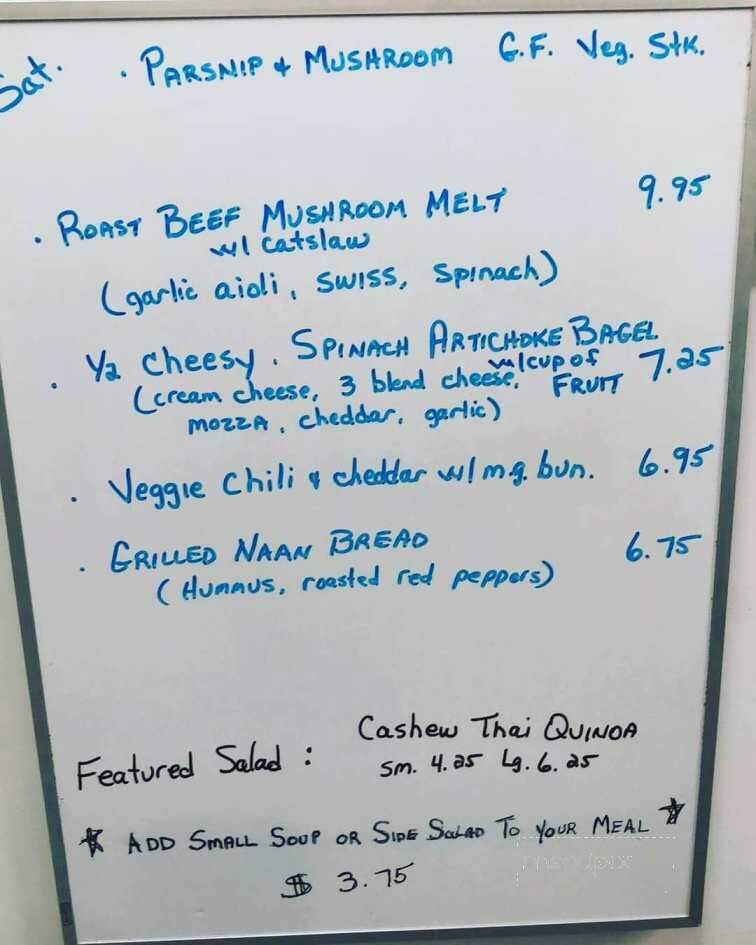 Sat. · PARSNIP & MUSHROOM G.F. Veg. Stk.
· ROAST BEEF MUSHROOM MELT 9.95
w/ catslaw
(garlic aioli, SWISS, Spinach)
· Y2 cheesy. SPINACH ARTICHOKE BAGEL
w/cup of FRUIT 7.25
(cream cheese, 3 blend cheese,
mozzA, cheddar, garlic)
· Veggie Chili & cheddar w/ m.g. bun. 6.95
· GRILLED NAAN BREAD 6.75
(HUMMUS, roasted red peppers)
Featured Salad : Cashew Thai QUINOA
Sm. 4.25 Lg. 6.25
★ ADD SMALL SOUP OR SIDE SALAD TO YOUR MEAL ★
$ 3.75